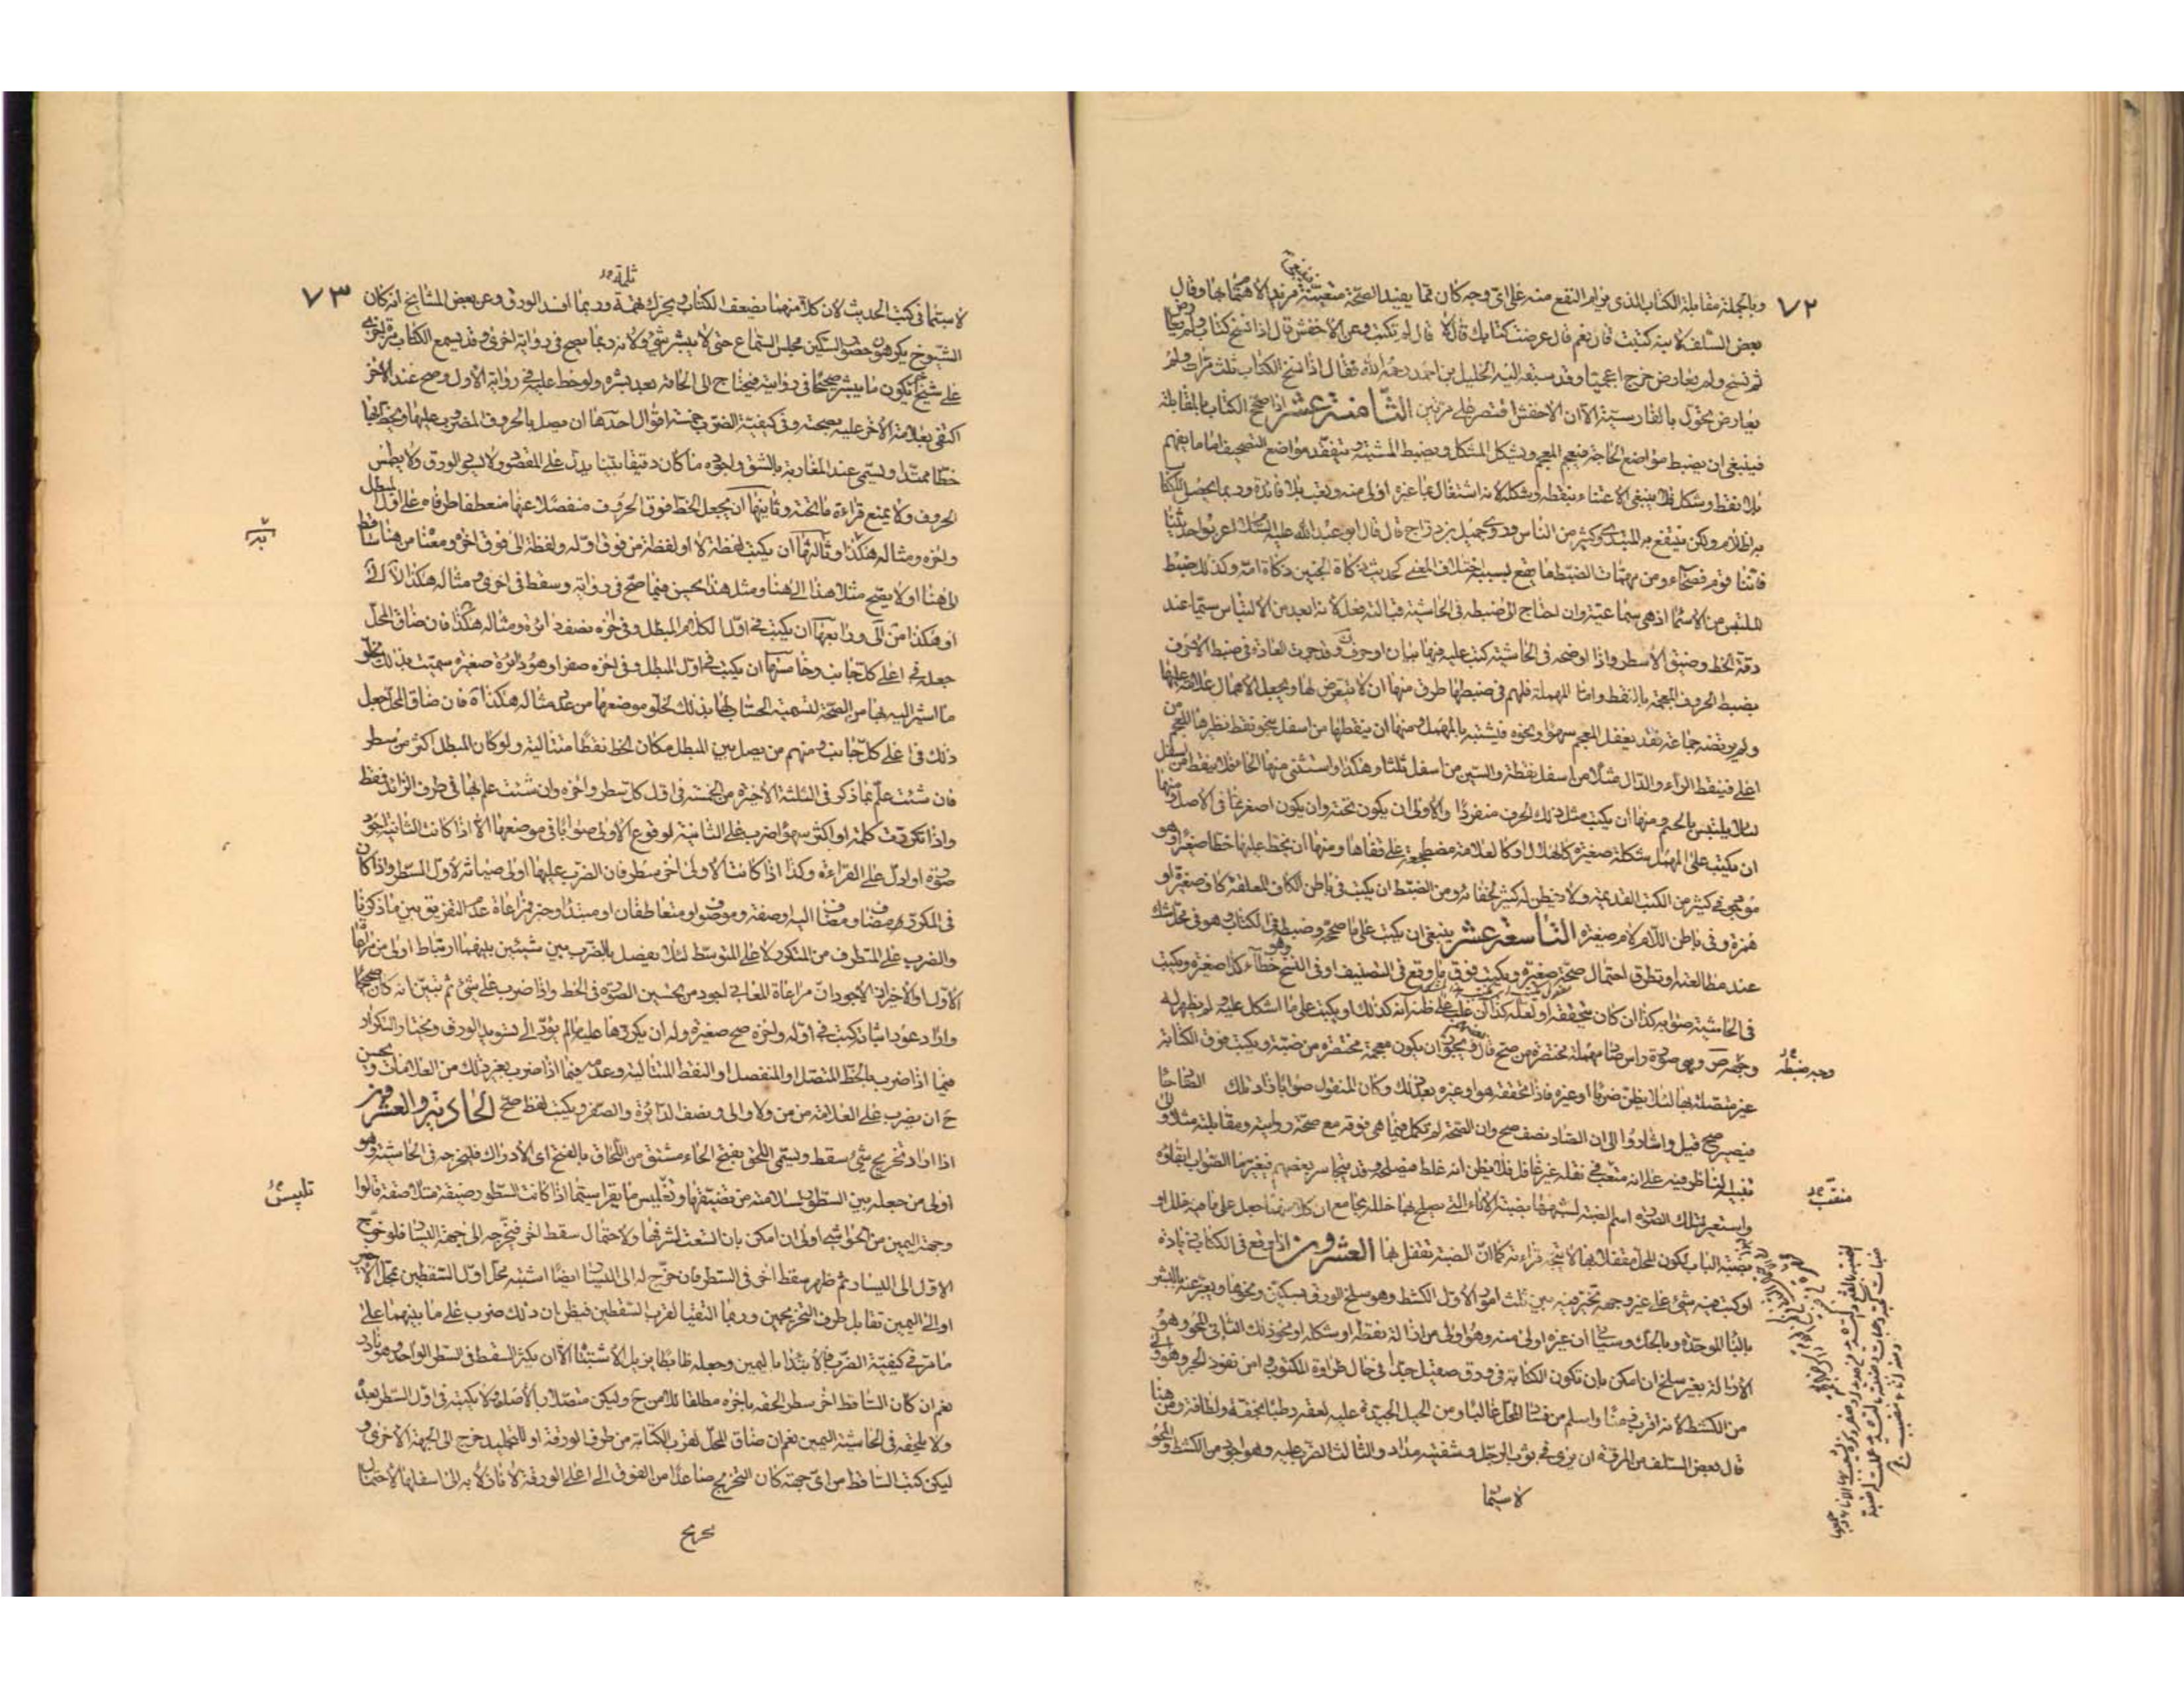 ٧٢
وبالجملة مقابلة الكتاب الذي يرام النفع منه على اي وجه كان مما يفيد الصحة متعينة مزيد الاهتمام بها وقال
بعض السلف لابنه كتبت قال نعم قال عرضت كتابك قال لا قال لم تكتب وعن الاخفش قال اذا نسخ كتاب ولم يعارض
ثم نسخ ولم يعارض خرج اعجميا وقد سبقه اليه الخليل بن احمد رحمه الله فقال اذا نسخ الكتاب ثلث مرات ولم
يعارض تحول بالفارسية الا ان الاخفش اقتصر على مرتين الثامنة عشر اذا صحح الكتاب بالمقابلة
فينبغي ان يضبط مواضع الحاجة فيعجم المعجم ويشكل المشكل ويضبط المشتبه ويتفقد مواضع التصحيف اما ما يفهم
بلا نقط وشكل فلا ينبغي الاعتناء بنقطه وشكله لانه اشتغال بما غيره اولى منه وتعب بلا فائدة وربما يحصل للكتاب
به اظلام ولكن ينتفع به المبتدي وكثير من الناس وروى جميل بن دراج قال قال ابو عبد الله عليه السلام اعربوا حديثنا
فانا قوم فصحاء ومن مهمات الضبط ما يقع بسببه اختلاف المعنى كحديث ذكاة الجنين ذكاة امه وكذلك ضبط
الملتبس من الاسماء اذ هي سماعية وان احتاج الى ضبطه في الحاشية قبالته فعل لانه ابعد من الالتباس سيما عند
دقة الخط وضيق الاسطر واذا اوضحه في الحاشية كتب عليه فيها بيان او حرف ن وقد جرت العادة في ضبط الاحرف
بضبط الحروف المعجمة بالنقط واما المهملة فلهم في ضبطها طرق منها ان لا يتعرض لها ويجعل الاهمال علامة عليها
ولم يرتضه جماعة فقد يغفل المعجم سهوا ونحوه فيشتبه بالمهمل ومنها ان ينقطها من اسفل بنحو نقط نظيرها المعجم من
اعلى فينقط الراء والدال مثلا من اسفل نقطة والسين من اسفل ثلثا وهكذا واستثنى منها الحاء فلا ينقط من اسفل
لئلا يلتبس بالجيم ومنها ان يكتب مثل ذلك الحرف منفردا والاولى ان يكون تحته وان يكون اصغر مما في الاصل ومنها
ان يكتب على المهمل شكلة صغيرة كالهلال او كالقلامة مضطجعة على قفاها ومنها ان يخط عليها خطا صغيرا وهو
موجود في كثير من الكتب القديمة ولا يفطن له كثير لخفائه ومن الضبط ان يكتب في باطن الكاف المعلقة كاف صغيرة او
همزة وفي باطن اللام لام صغيرة التاسعة عشر ينبغي ان يكتب على ما صححه وضبطه في الكتاب وهو في محل شك
عند مطالعته او تطرق احتمال صح صغيرة ويكتب فوق ما وقع في التصنيف او في النسخ وهو خطأ كذا صغيرة ويكتب
في الحاشية صوابه كذا ان كان يتحققه او لعله كذا ان غلب على ظنه انه كذلك او يكتب على ما اشكل عليه ولم يظهر له
وجهه صـ وهي صورة راس صاد مهملة مختصرة من صح قال بعضهم ويجوز ان يكون معجمة مختصرة من ضبة ويكتب فوق الكتابة
غير متصلة بها لئلا يظن ضربا او غيره فاذا تحققه هو او غيره بعد ذلك وكان المنقول صوابا زاد تلك الصاد حاء
فيصير صح قيل واشاروا الى ان الصاد نصف صح وان الصحة لم تكمل فيما هي فوقه مع صحة روايته ومقابلته مثلا والى
تنبيه الناظر فيه على انه متعقب في نقله غير غافل فلا يظن انه غلط فيصلحه وقد يتجاسر بعضهم فيغير ما الصواب ابقاؤه
واستعير لتلك الصورة اسم الضبة لشبهها بضبة الاناء التي يصلح بها خلله بجامع ان كلا منهما جعل على ما فيه خلل او
بضبة الباب لكون المحل مقفلا بها لا يتجه قراءته كما ان الضبة يقفل بها العشرون اذا وقع في الكتاب زيادة
او كتب فيه شئ على غير وجهه تخير فيه بين ثلث امور الاول الكشط وهو سلخ الورق بسكين ونحوها ويعبر عنه بالبشر
بالباء الموحدة وبالحك وسياتي ان غيره اولى منه وهو اولى من ازالة نقطة او شكله او نحو ذلك الثاني المحو وهو
الازالة بغير سلخ ان امكن بان تكون الكتابة في ورق صقيل جدا في حال طراوة المكتوب وامن نفوذ الحبر وهو اولى
من الكشط لانه اقرب زمنا واسلم من فساد المحل غالبا ومن الحيل الجيدة عليه لعقه رطبا بخفة ولطافة ومن هنا
قال بعض السلف من المروة ان يرى في ثوب الرجل وشفتيه مداد والثالث الضرب عليه وهو اجود من الكشط والمحو
لا سيما
وجه ضبطه
متعقب
٧٣
لا سيما في كتب الحديث لان كلا منهما يضعف الكتاب ويحرك تهمة وربما افسد الورق وعن بعض المشايخ انه كان
الشيوخ يكرهون حضور السكين مجلس السماع حتى لا يبشر شئ ولانه ربما يصح في رواية اخرى وقد يسمع الكتاب مرة اخرى
على شيخ يكون ما يبشر صحيحا في روايته فيحتاج الى الحاقه بعد بشره ولو خط عليه في رواية الاول وصح عند الاخر
اكتفى بعلامة الاخر عليه بصحته وفي كيفية الضرب خمسة اقوال احدها ان يصل بالحروف المضروب عليها ويخط بها
خطا ممتدا ويسمى عند المغاربة بالشق واجوده ما كان دقيقا بينا يدل على المقصود ولا يسود الورق ولا يطمس
الحروف ولا يمنع قراءة ما تحته وثانيها ان يجعل الخط فوق الحروف منفصلا عنها منعطفا طرفاه على اول المبطل
واخره ومثاله هكذا وثالثها ان يكتب لفظة لا او لفظة من فوق اوله ولفظة الى فوق اخره ومعناه من هنا ساقط
الى هنا او لا يصح مثلا هذا الى هنا ومثل هذا يحسن فيما صح في رواية وسقط في اخرى ومثاله هكذا لا الى
او هكذا من الى ورابعها ان يكتب في اول الكلام المبطل وفي اخره نصف دائرة ومثاله هكذا فان ضاق المحل
جعله في اعلى كل جانب وخامسها ان يكتب في اول المبطل وفي اخره صفرا وهو دائرة صغيرة سميت بذلك لخلو
ما اشير اليه بها من الصحة كتسمية الحساب لها بذلك لخلو موضعها من عدد مثاله هكذا ه فان ضاق المحل جعل
ذلك في اعلى كل جانب ومنهم من يصل بين المبطل مكان الخط نقطا متتالية ولو كان المبطل اكثر من سطر
فان شئت علم بما ذكر في الثلثة الاخيرة من الخمسة في اول كل سطر واخره وان شئت علم بها في طرف الزائد فقط
واذا تكررت كلمة او اكثر سهوا ضرب على الثانية لوقوع الاولى صوابا في موضعها الا اذا كانت الثانية اجود
صورة او ادل على القراءة وكذا اذا كانت الاولى اخر سطر فان الضرب عليها اولى صيانة لاول السطر واذا كان
في المكرر مضاف ومضاف اليه او صفة وموصوف او متعاطفان او مبتدا وخبر فمراعاة عدم التفريق بين ما ذكرنا
والضرب على المتطرف من المتكرر لا على المتوسط لئلا يفصل بالضرب بين شيئين بينهما ارتباط اولى من مراعاة
الاول او الاخير او الاجود اذ مراعاة المعاني اجود من تحسين الصورة في الخط واذا ضرب على شئ ثم تبين انه كان صحيحا
واراد عود اثباته كتب في اوله واخره صح صغيرة وله ان يكررها عليه ما لم يؤد الى تسويد الورق ويختار التكرار
فيما اذا ضرب بالخط المتصل او المنفصل او النقط المتتالية وعدمه فيما اذا ضرب بغير ذلك من العلامات ويحسن
ح ان يضرب على العلامة من من ولا والى ونصف الدائرة والصفر ويكتب لفظ صح الحادية والعشرون
اذا اراد تخريج شئ سقط ويسمى اللحق بفتح الحاء مشتق من اللحاق بالفتح اي الادراك فليخرجه في الحاشية وهو
اولى من جعله بين السطور لسلامته من تضييقها وتغليس ما يقرا سيما اذا كانت السطور ضيقة متلاصقة قالوا
وجهة اليمين من الحواشي اولى ان امكن بان اتسعت لشرفها ولاحتمال سقط اخر فيخرجه الى جهة اليسار فلو خرج
الاول الى اليسار ثم ظهر سقط اخر في السطر فان خرج له الى اليسار ايضا اشتبه محل اول السقطين بمحل الاخر
او الى اليمين تقابل طرف التخريجين وربما التقيا لقرب السقطين فيظن ان ذلك ضرب على ما بينهما على
ما مر في كيفية الضرب فالابتداء باليمين وجعله ضابطا يزيل الاشتباه الا ان يكثر السقط في السطر الواحد وهو نادر
نعم ان كان الساقط اخر سطر الحقه باخره مطلقا للامن ح وليكن متصلا بالاصل ولا يكتبه في اول السطر بعده
ولا يلحقه في الحاشية اليمين نعم ان ضاق المحل لقرب الكتابة من طرف الورقة او للتجليد خرج الى الجهة الاخرى و
ليكن كتب الساقط من اي جهة كان التخريج صاعدا من الفوق الى اعلى الورقة لا نازلا به الى اسفلها لاحتمال
تخريج